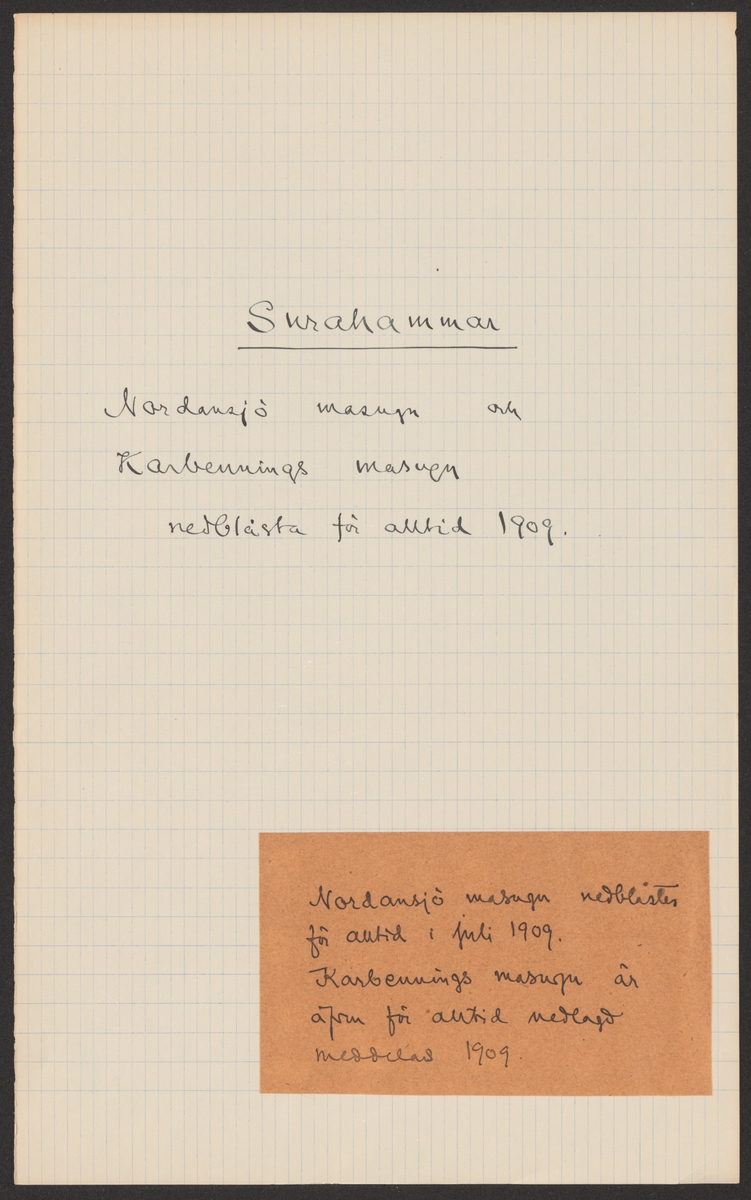 Surahammar
Nordansjö masugn och
Karbennings masugn
nedblåsta för alltid 1909.
Nordansjö masugn nedblåstes
för alltid i juli 1909.
Karbennings masugn är
äfven för alltid nedlagd
meddelas 1909.